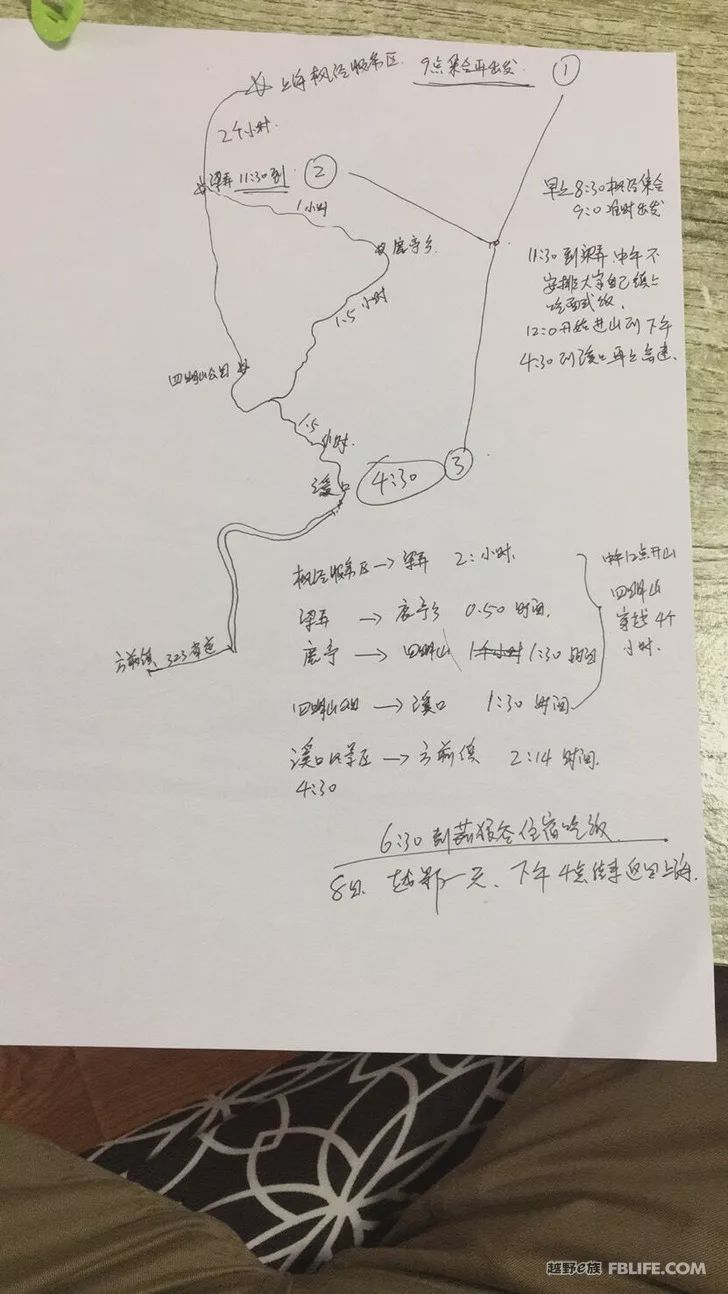 上海枫泾服务区 9点集合再出发 ①
2个小时
梁弄 11:30到 ②
1小时
鹿亭乡
1.5小时
四明山公园
1.5小时
溪口 4:30 ③
方前镇 323省道
早上8:30枫泾集合
9:0准时出发
11:30到梁弄 中午不
安排大家自己镇上
吃面或饭.
12:0开始进山到下午
4:30到溪口再上高速.
枫泾服务区→梁弄 2:小时.
梁弄→鹿亭乡 0.50时间.
鹿亭→四明山 1个小时 1:30时间
四明山公园→溪口 1:30时间
中午12点开山
四明山
穿越4个
小时.
溪口服务区→方前镇 2:14时间.
4:30
6:30到 住宿吃饭
8日 越野一天、下午4点结束返回上海.
越野e族 FBLIFE.COM